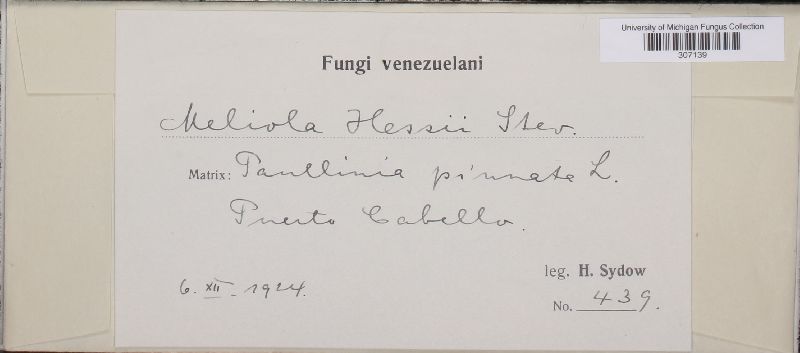 University of Michigan Fungus Collection
307139
Fungi venezuelani
Meliola Hessii Stev.
Matrix: Paullinia pinnata L.
Puerto Cabello.
leg. H. Sydow
6. XII. 1924.
No. 439.